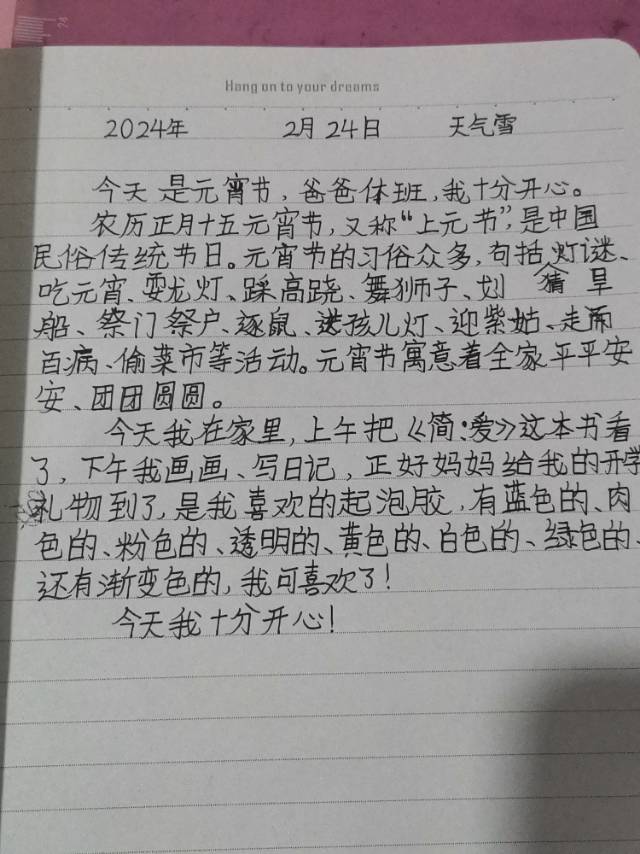 Hang on to your dreams
2024年 2月24日 天气雪
今天是元宵节,爸爸休班,我十分开心。
农历正月十五元宵节,又称“上元节”,是中国
民俗传统节日。元宵节的习俗众多,句括灯谜、
吃元宵、耍龙灯、踩高跷、舞狮子、划 猜 旱
船、祭门祭户、逐鼠、送孩儿灯、迎紫姑、走而
百病、偷菜市等活动。元宵节寓意着全家平平安
安、团团圆圆。
今天我在家里,上午把《简·爱》这本书看
了,下午我画画、写日记,正好妈妈给我的开学
礼物到了,是我喜欢的起泡胶,有蓝色的、肉
色的、粉色的、透明的、黄色的、白色的、绿色的、
还有渐变色的,我可喜欢了!
今天我十分开心!